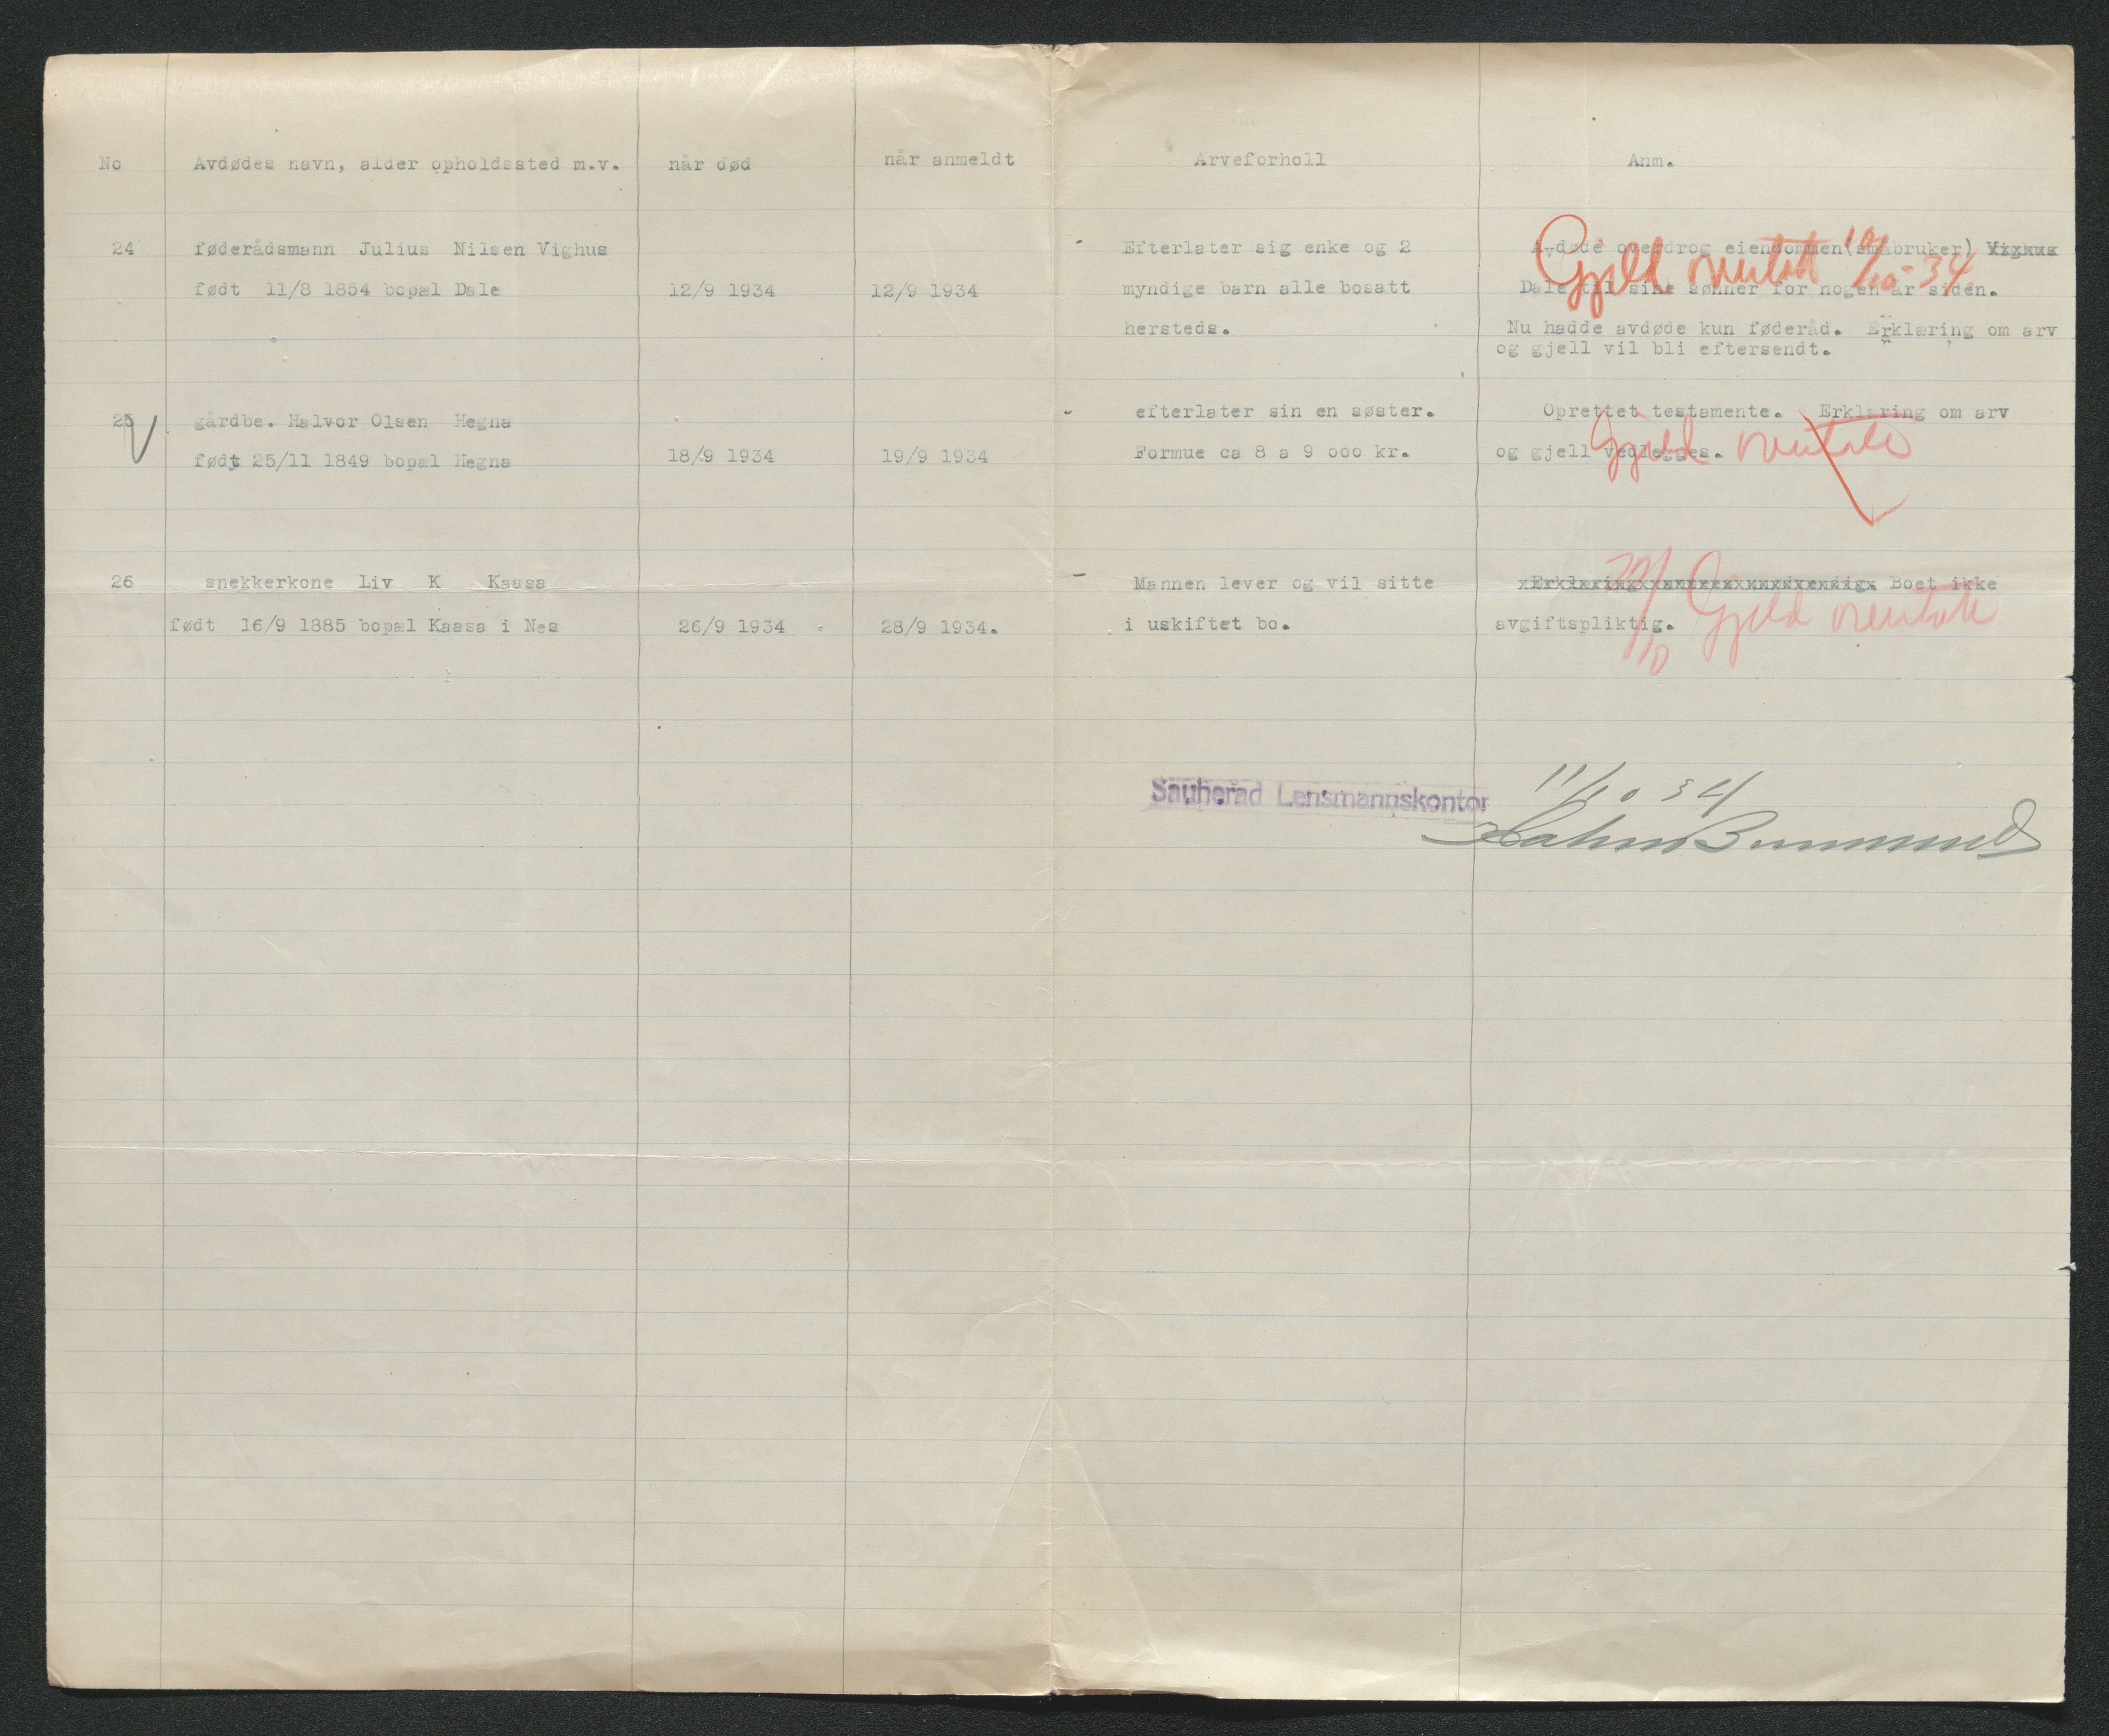 No Avdødes navn, alder opholdssted m.v. når død når anmeldt Arveforholl Anm.
24 føderådsmann Julius Nilsen Vighus Efterlater sig enke og 2 Avdøde overdrog eiendommen(småbruker) Vighus
født 11/8 1854 bopæl Dale 12/9 1934 12/9 1934 myndige barn alle bosatt Dale til sine sønner for nogen år siden.
hersteds. Nu hadde avdøde kun føderåd. Erklæring om arv
og gjell vil bli eftersendt.
Gjeld 10/10-34.
25 gårdbe. Halvor Olsen Hegna efterlater sin en søster. Oprettet testamente. Erklæring om arv
født 25/11 1849 bopæl Hegna 18/9 1934 19/9 1934 Formue ca 8 a 9 ooo kr. og gjell vedlegges.
Gjeld
26 snekkerkone Liv K Kaasa Mannen lever og vil sitte Boet ikke
født 16/9 1885 bopæl Kaasa i Nes 26/9 1934 28/9 1934. i uskiftet bo. avgiftspliktig.
Gjeld
Sauherad Lensmannskontor 11/10 34